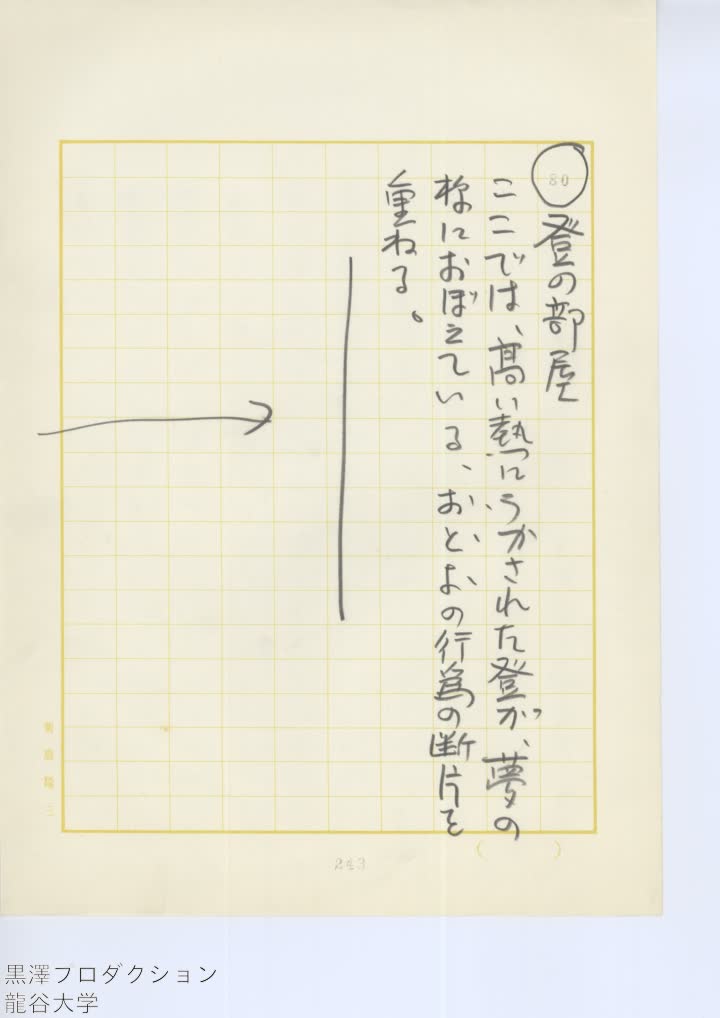 80
登の部屋
ここでは、高い熱にうかされた登が、夢の
様におぼえている、おとよの行為の断片を
重ねる。
243
黒澤プロダクション
龍谷大学